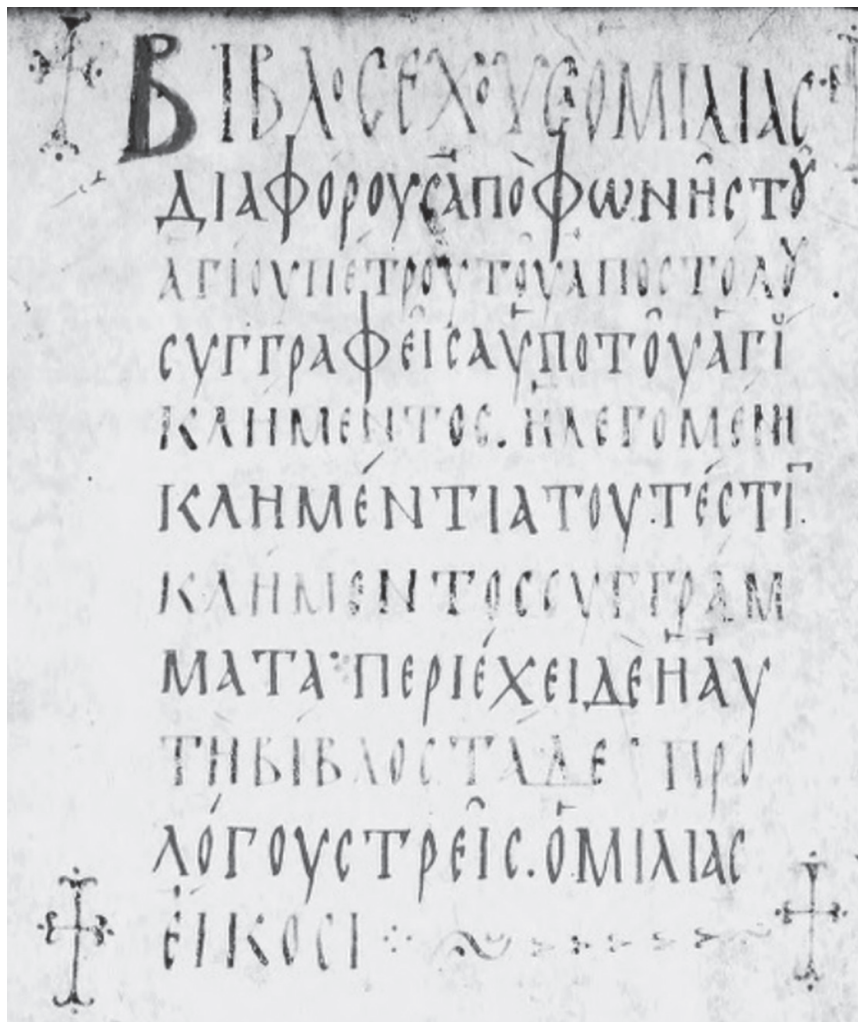 ΒΙΒΛΟϹ ΕΧΟΥϹΑ ΟΜΙΛΙΑϹ
ΔΙΑΦΟΡΟΥϹ ἀΠὸ ΦΩΝῆϹ Τȣͅ
ΑΓΙΟΥ ΠΕΤΡΟΥ ΤΟῦ ἀΠΟϹΤΟΛȣ
ϹΥΓΓΡΑΦΕῖϹΑ ὑΠΟ ΤΟῦ ἁΓΙȣ
ΚΛΗΜΕΝΤΟϹ. Ἡ ΛΕΓΟΜΕΝΗ
ΚΛΗΜέΝΤΙΑ ΤΟΥΤέϹΤΙ
ΚΛΗΜΕΝΤΟϹ ϹΥΓΓΡΑΜ
ΜΑΤΑ· ΠΕΡΙέΧΕΙ Δὲ Ἡ ΑὐΥ
ΤΗ ΒΙΒΛΟϹ ΤΑΔΕ· ΠΡΟ
ΛόΓΟΥϹ ΤΡΕῖϹ. ὁΜΙΛΙΑϹ
ΕἴΚΟϹΙ